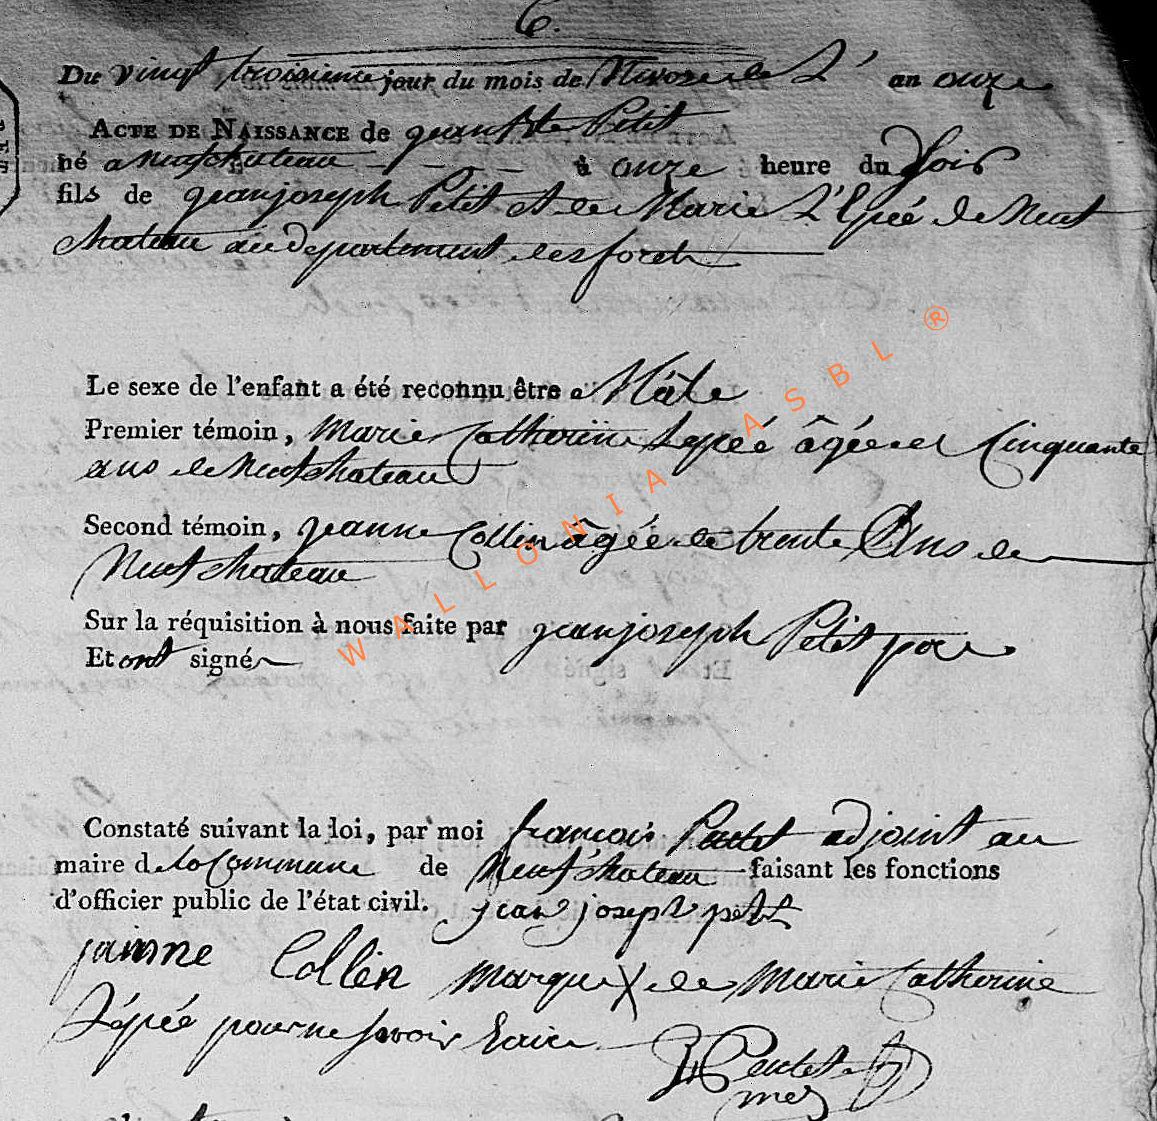 6.
Du vingt troisieme jour du mois de Nivose de L' an onze
ACTE DE NAISSANCE de Petit
né a neufchateau à onze heure du soir
fils de jean joseph Petit et de Marie L'Epée de Neuf
chateau au departement des foret
Le sexe de l'enfant a été reconnu être Mâle
Premier témoin, Marie Catherine Lepeé âgée de Cinquante
ans de Neufchateau
Second témoin, jeanne Collin âgée de trente Ans de
Neufchateau
Sur la réquisition à nous faite par jean joseph Petit pere
Et ont signé
Constaté suivant la loi, par moi francois adjoint au
maire de la Commune de Neufchateau faisant les fonctions
d'officier public de l'état civil. jean joseph petit
Collin marque X de Marie Catherine
L'épée pour ne savoir Ecrire
WALLONIA ASBL ®